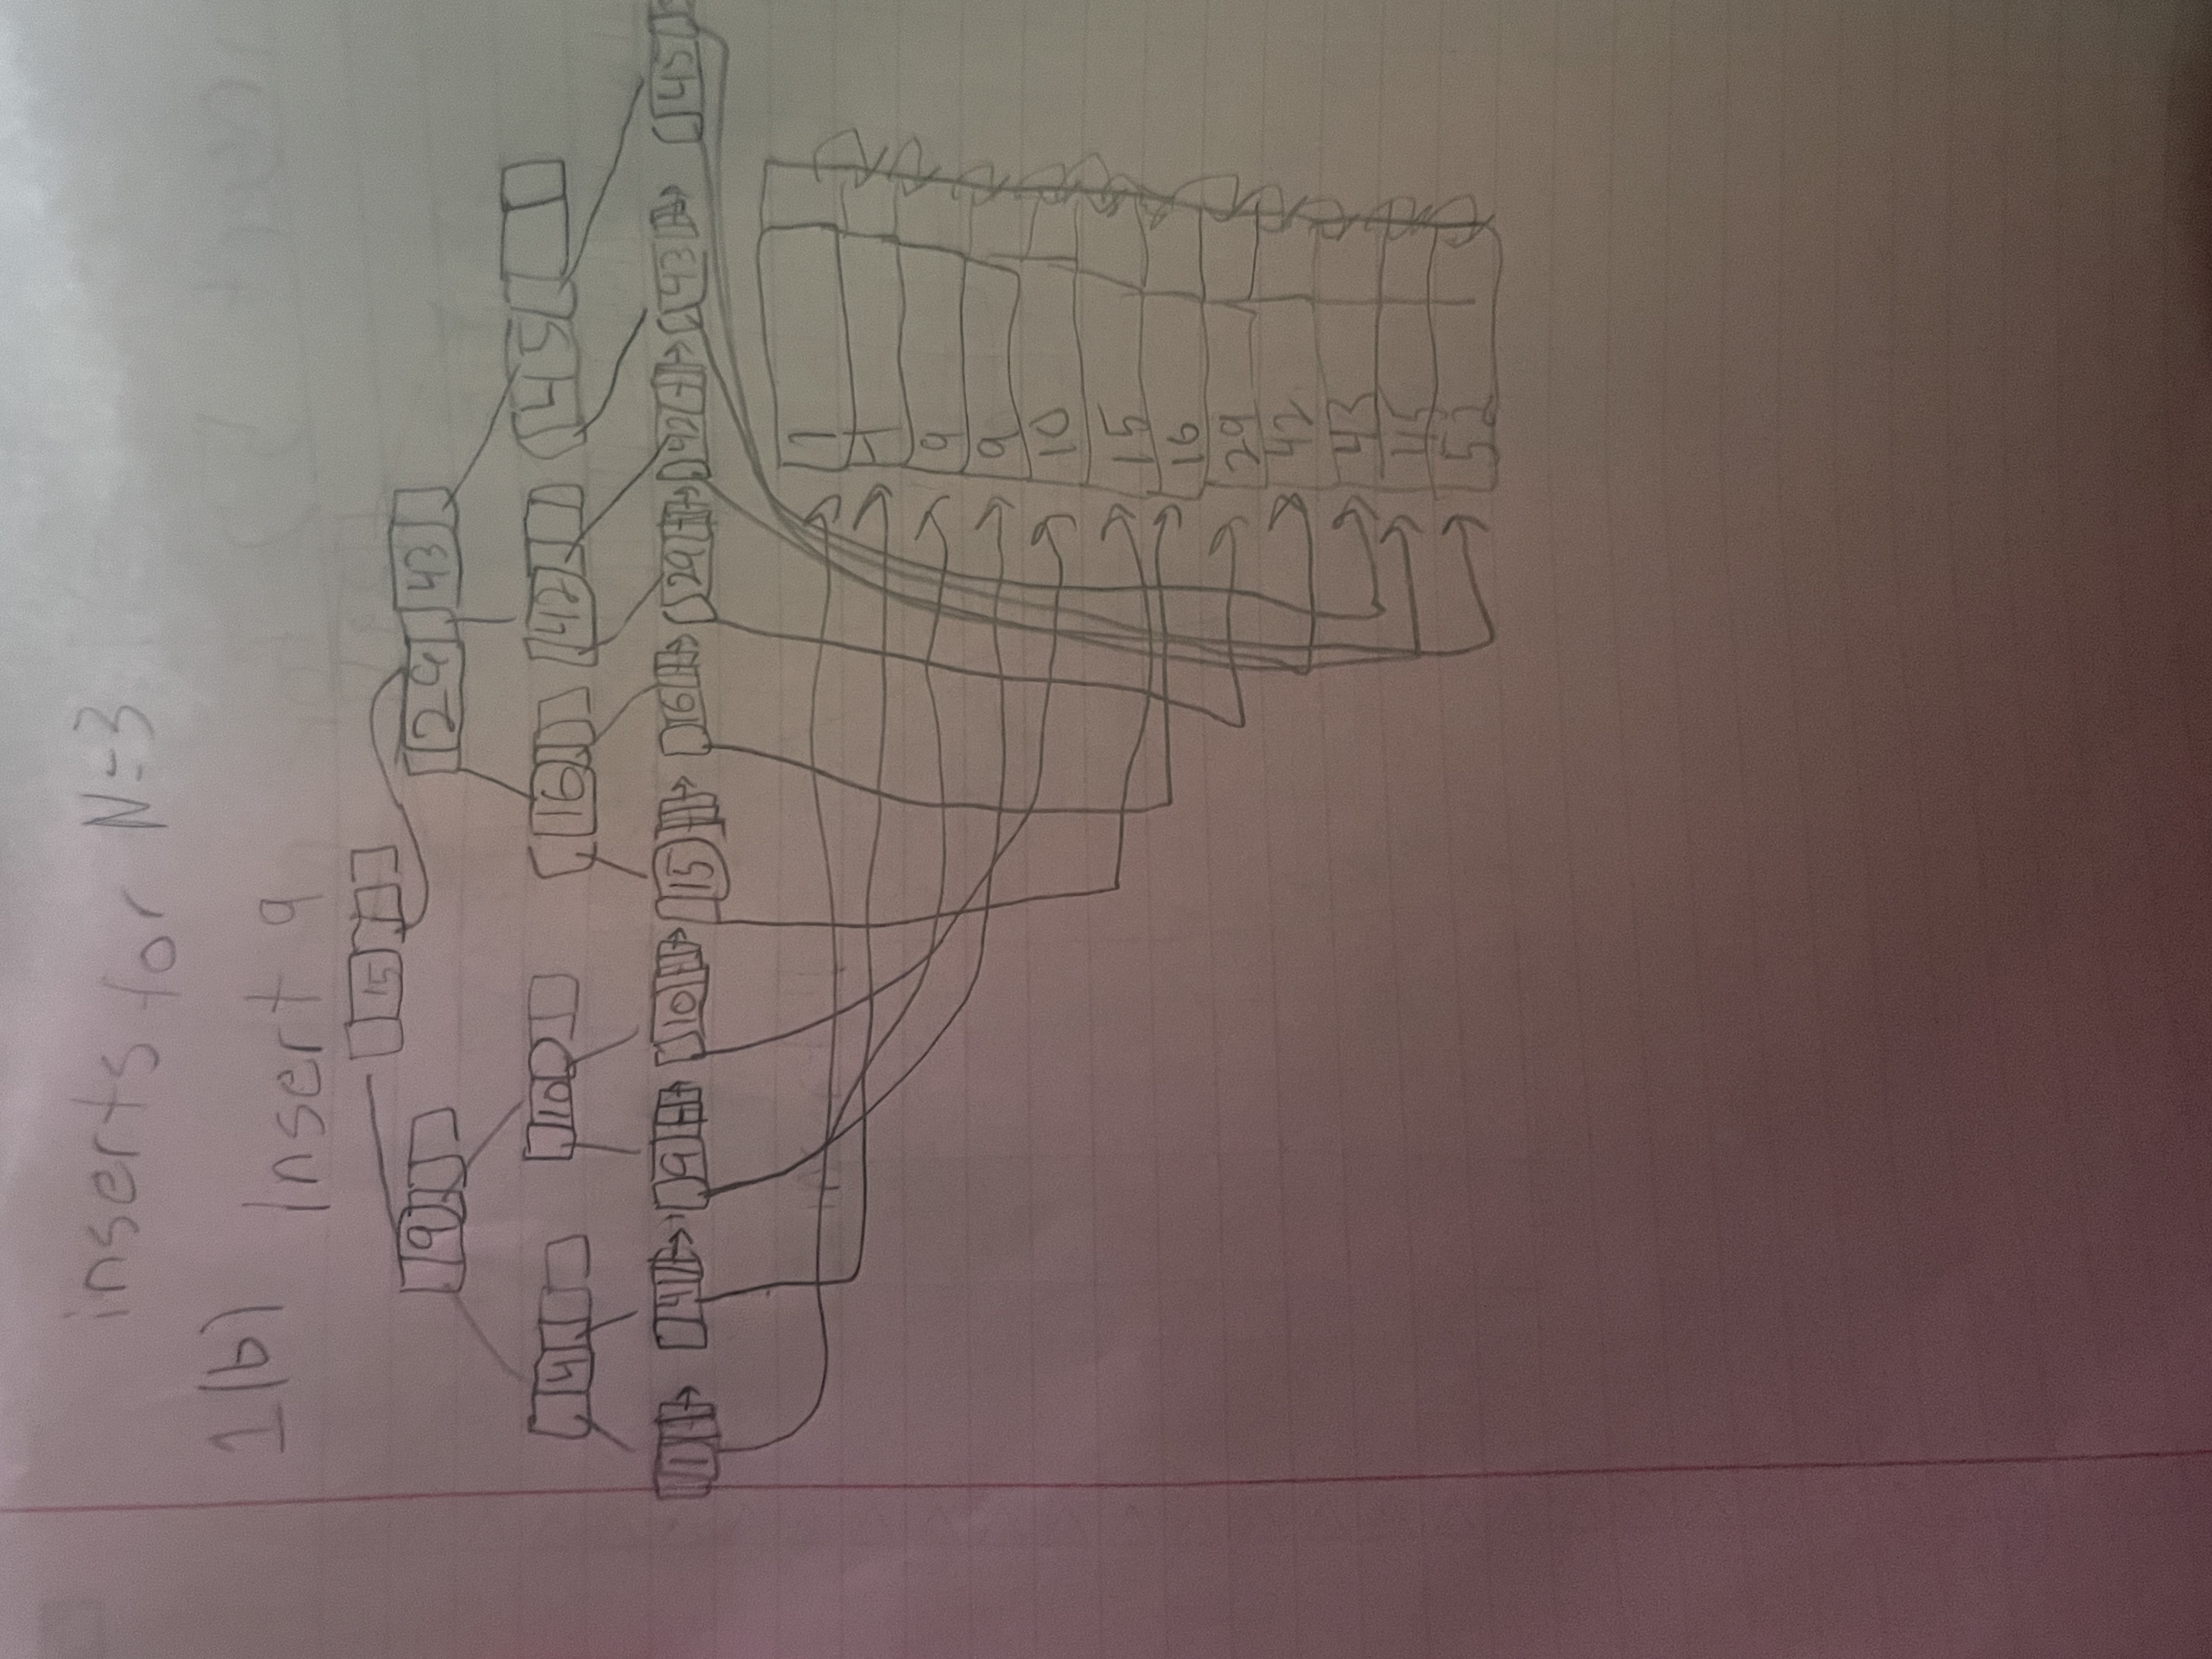 inserts for N=3
1(b)
Insert 9
15
9 29 43
4 10 16 42 45
1 4 9 10 15 16 29 42 43 45
1
4
9
9
10
15
16
29
42
43
45
52